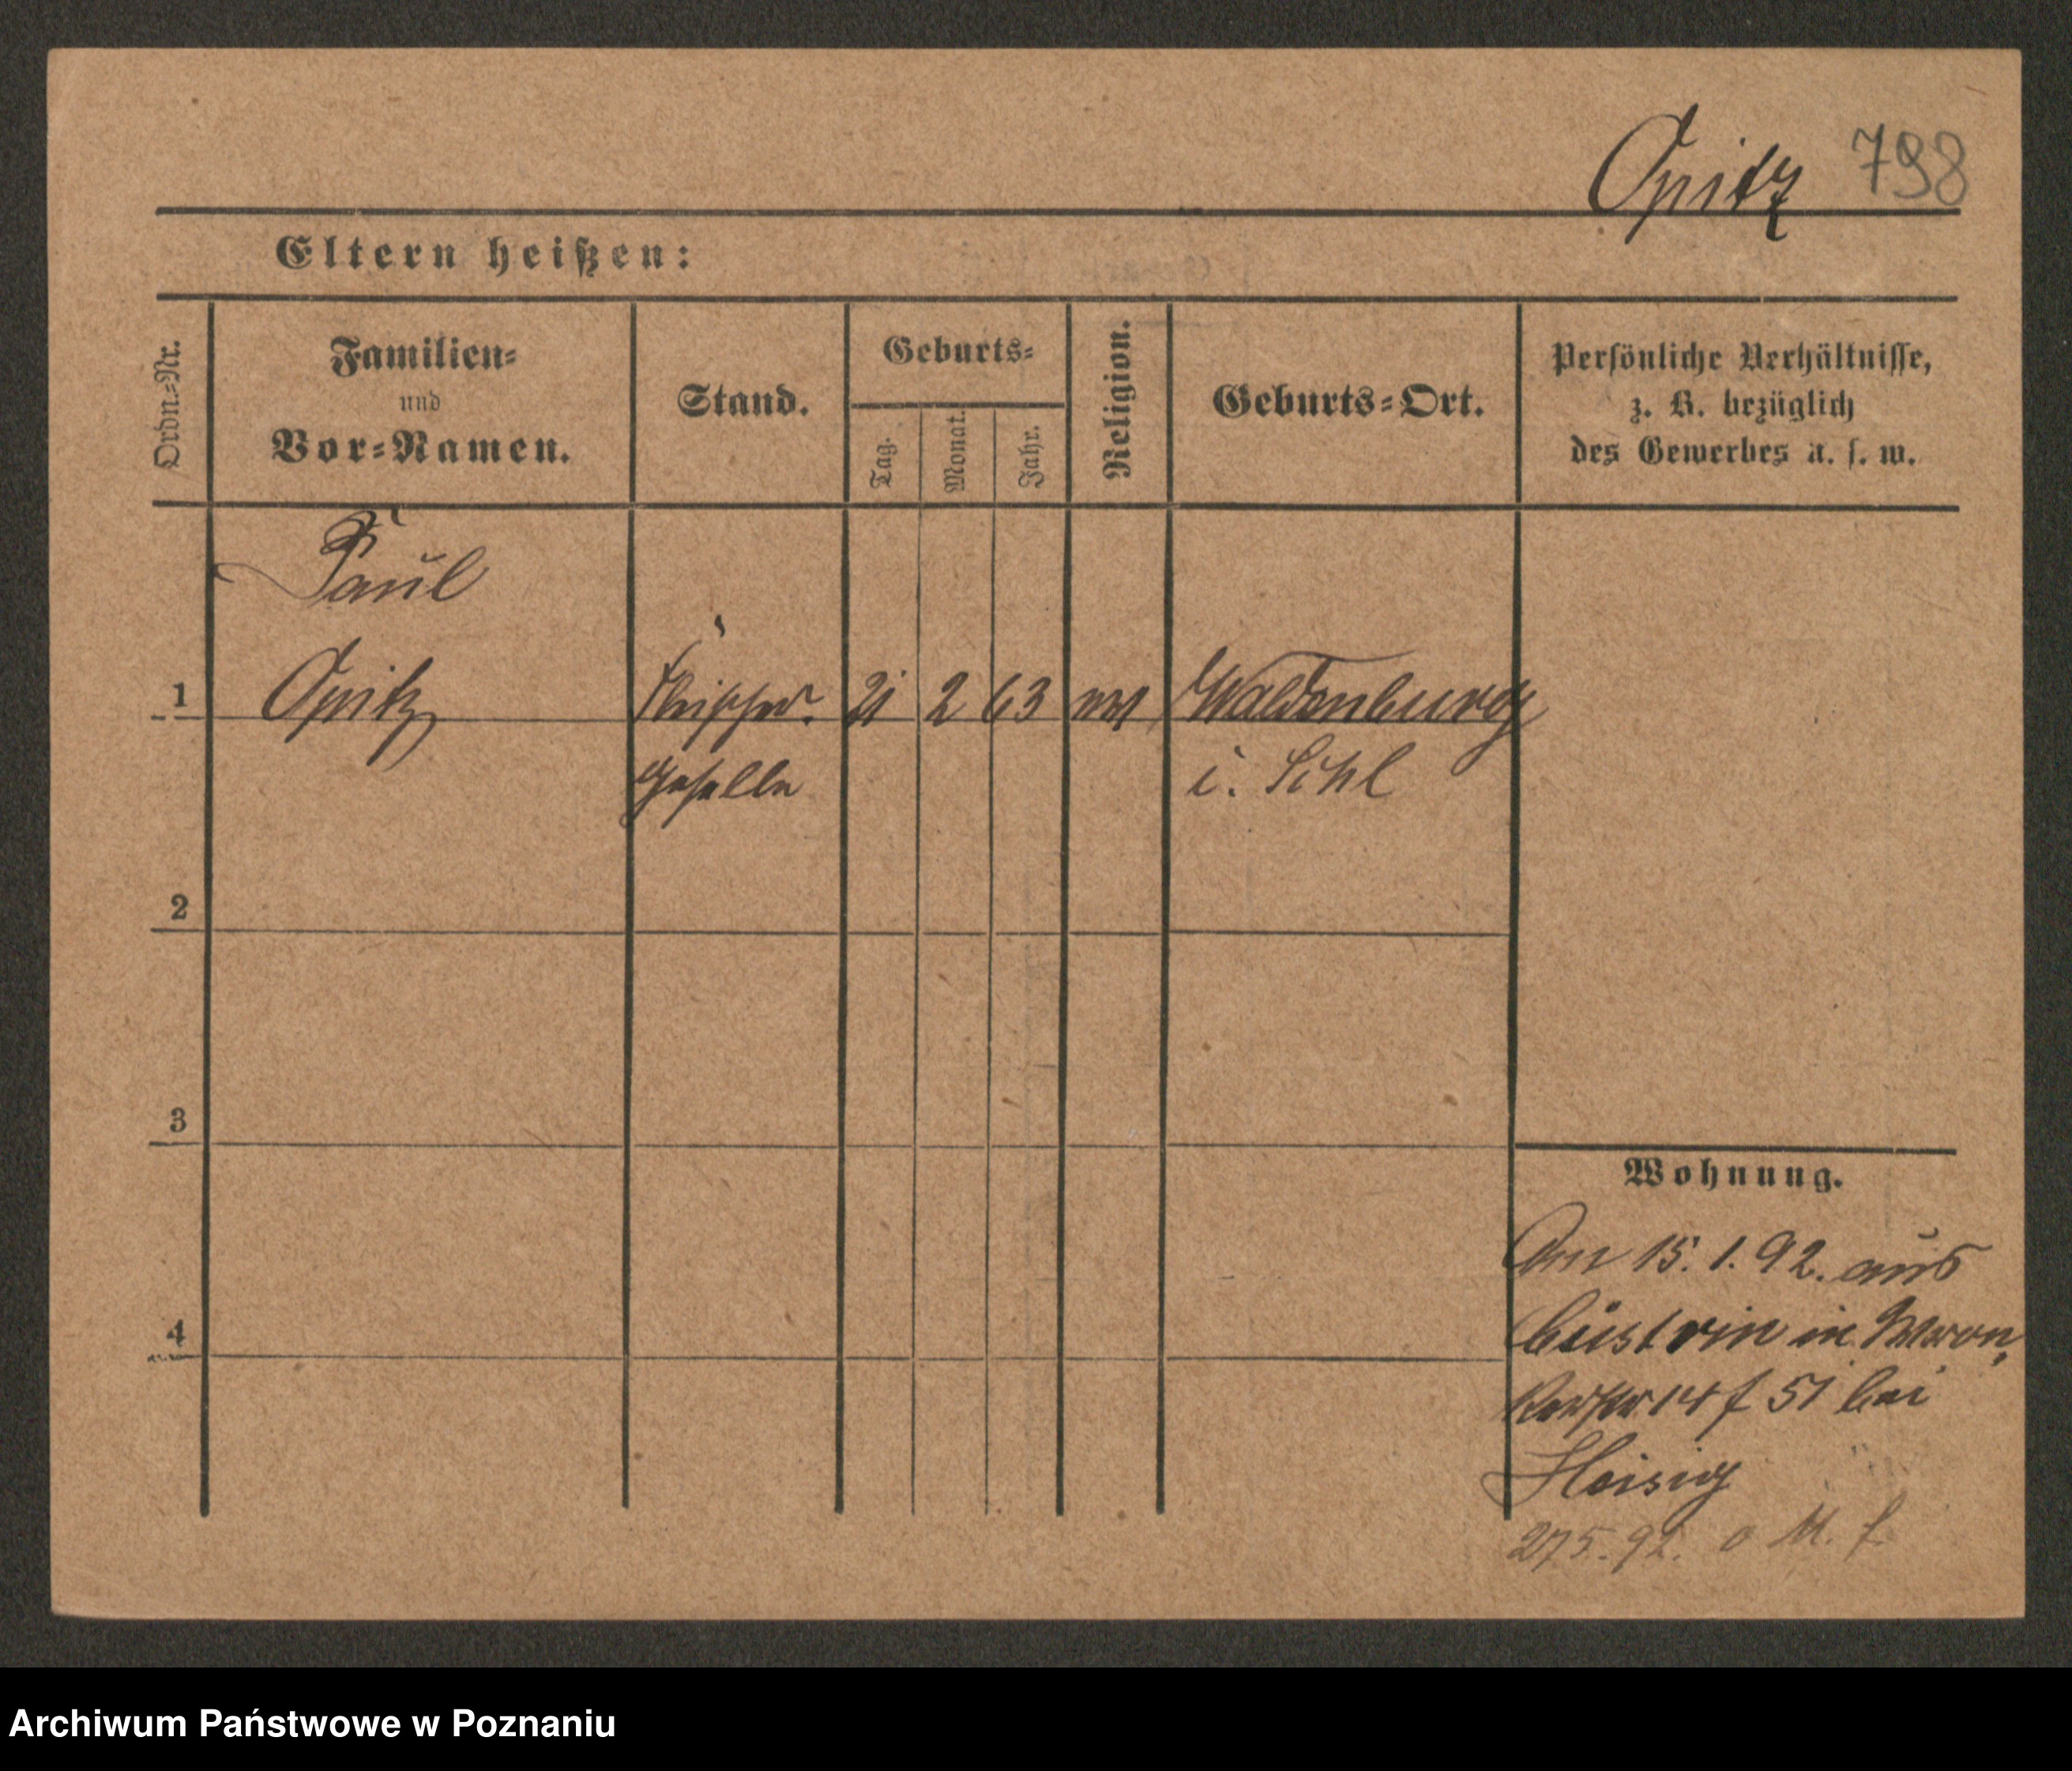 Opitz 798
Eltern heißen:
Ordn.=Nr.
Familien=
und
Vor=Namen.
Stand.
Geburts=
Tag.
Monat.
Jahr.
Religion.
Geburts=Ort.
Persönliche Verhältnisse,
z. B. bezüglich
des Gewerbes u. s. w.
Paul
1 Opitz 21 2 63 Waldenburg
Geselle i. Schl
2
3
4
Wohnung.
Am 15.1.92. aus
Cüstrin in Wron,
14 f 51 bei
Heisig
275.92. o M. f.
Archiwum Państwowe w Poznaniu